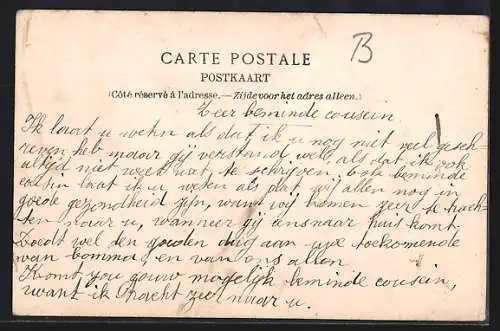 B
CARTE POSTALE
POSTKAART
(Côté réservé à l'adresse.—Zijde voor het adres alleen.)
Zeer beminde cousein
Ik laat u wehn als dat ik u nog niet veel gesch-
reven heb maar gij verstand wel als dat ik ook
altijd niet weet wat te schrijven beminde
cousin laat ik u weten als dat wij allen nog in
goede gezondheid zijn, want wij komen zeer te trach-
ten naar u, wanneer gij ons naar huis komt.
wel den goeden dag aan uwe toekomende
van bomma en van ons allen
Komt gouw mogelijk beminde cousein,
want ik tracht zeer naar u.